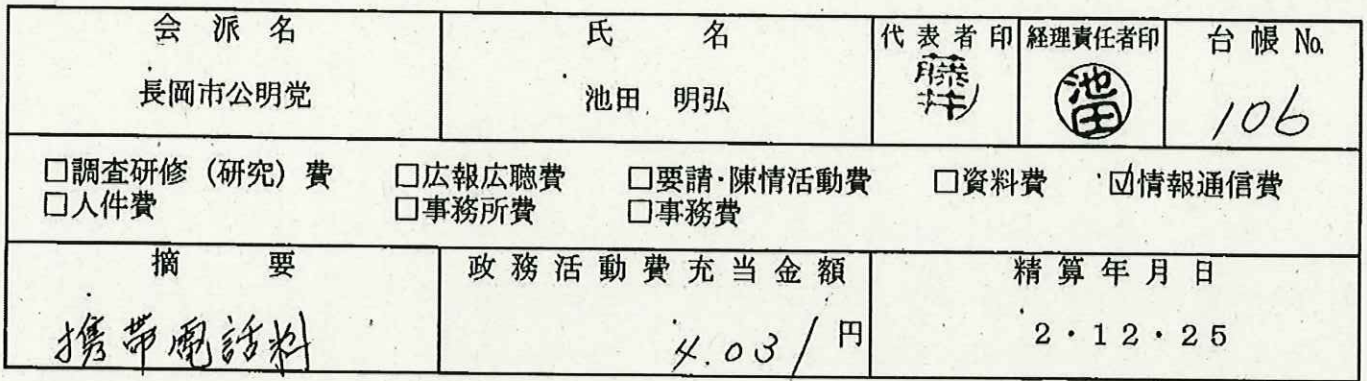 会派名 氏名 代表者印 経理責任者印 台帳No.
長岡市公明党 池田 明弘 藤井 池田 106
□調査研修（研究）費 □広報広聴費 □要請・陳情活動費 □資料費 ☑情報通信費
□人件費 □事務所費 □事務費
摘要 政務活動費充当金額 精算年月日
携帯電話料 4.031円 2・12・25